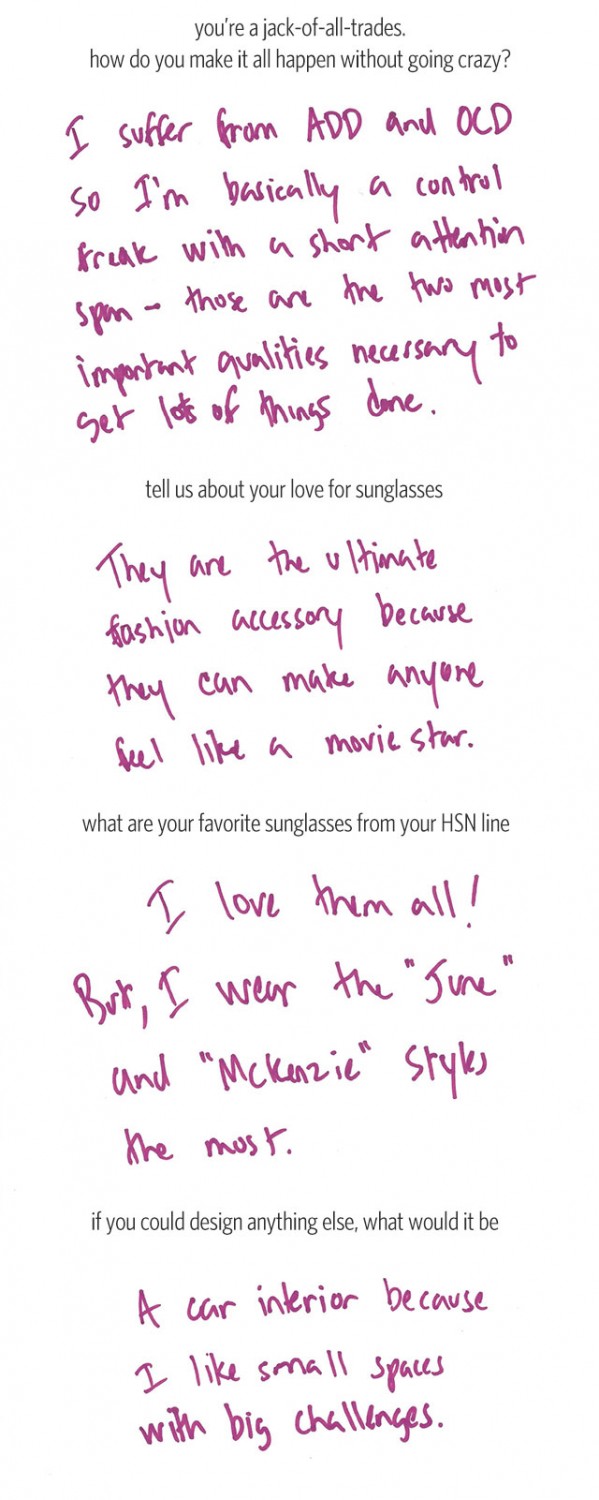 you're a jack-of-all-trades.
how do you make it all happen without going crazy?
I suffer from ADD and OCD
so I'm basically a control
freak with a short attention
span - those are the two most
important qualities necessary to
get lots of things done.
tell us about your love for sunglasses
They are the ultimate
fashion accessory because
they can make anyone
feel like a movie star.
what are your favorite sunglasses from your HSN line
I love them all!
But, I wear the "June"
and "McKenzie" styles
the most.
if you could design anything else, what would it be
A car interior because
I like small spaces
with big challenges.